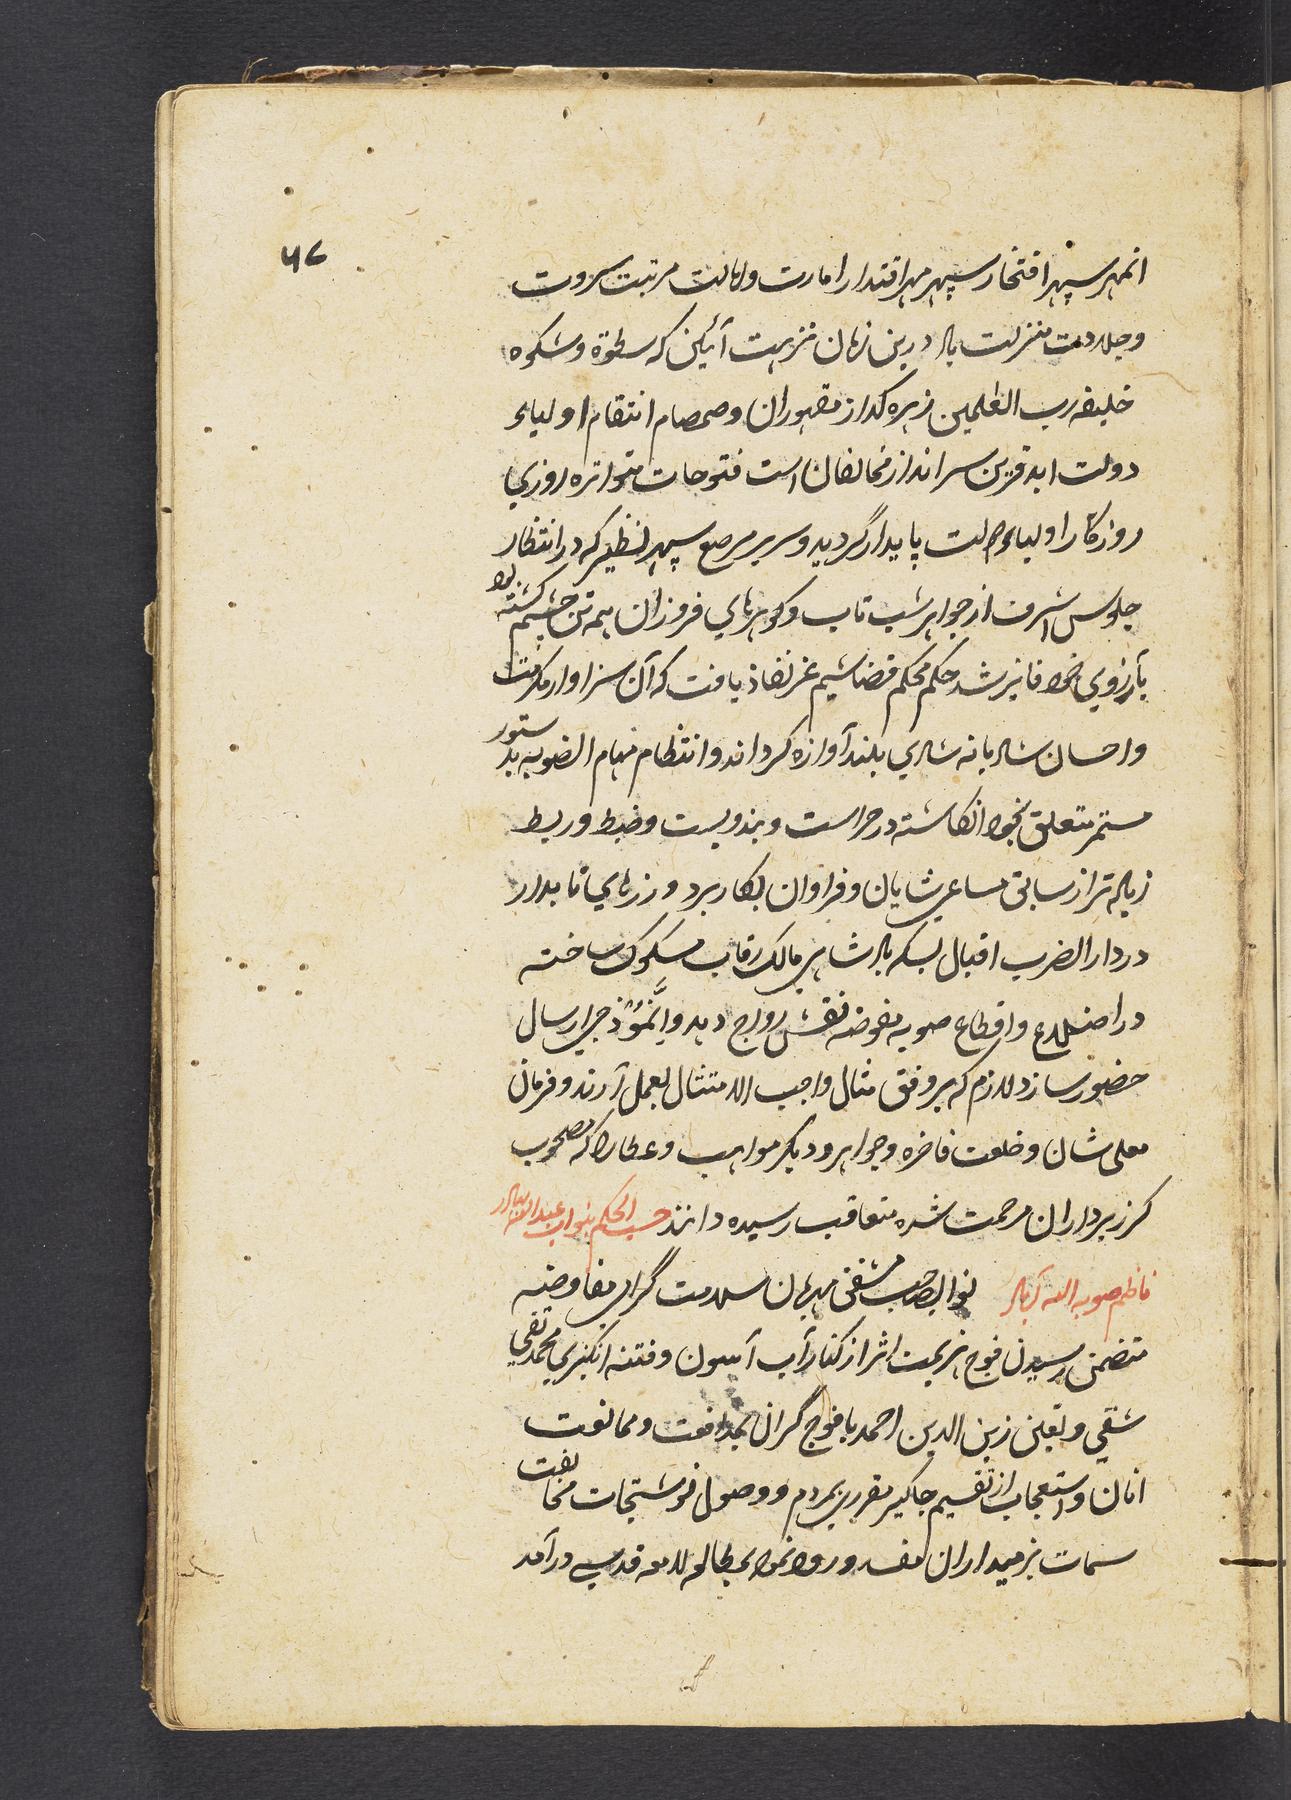 ۵۷
انمهر سپهر افتخار سپهر مهر اقتدار امارت و ایالت مرتبت ثروت
و جلادت منزلت باد درین زمان نزهت آئین که سطوة و شکوه
خلیفه رب العلمین زهره کداز مقهوران و صمصام انتقام اولیاء
دولت ابد قرین سر انداز مخالفان است فتوحات متواتره روزی
روزکار اولیاء دولت پایدار گردید و سریر مرصع سپهر نظیر که در انتظار
جلوس اشرف از جواهر شب تاب و کوهرهای فروزان همه تن چشم کشته بود
بآرزوی خود فایز شد حکم محکم قضا شیم عز نفاذ یافت که آن سزاوار مکرمت
و احسان شادیانه شادی بلند آوازه کرداند و انتظام مهام الصوبه بدستور
مستمر متعلق بخود انکاشته در حراست و بندوبست و ضبط و ربط
زیاده تر از سابق مساعی شایان و فراوان بکار برد و زرهای تابدار
در دار الضرب اقبال بسکه بادشاهی مالک رقاب مسکوک ساخته
در اضلاع و اقطاع صوبه مفوضه نقش رواج دهد و انموذجی ارسال
حضور سازد لازم که بر وفق مثال واجب الامتثال بعمل آرند و فرمان
معلی شان و خلعت فاخره و جواهر و دیکر مواهب و عطایا را که مصحوب
کرزبرداران مرحمت شده متعاقب رسیده دانند حسب الحکم بنواب عبد الله بهادر
ناظم صوبه اله آباد نواب صاحب مشفق مهربان سلامت گرامی مفاوضه
متضمن رسیدن فوج هزیمت اثر از کنار آب آنسون و فتنه انکیزی محمد تقی
شقی و تعین زین الدین احمد با فوج گران بمدافعت و ممانعت
آنان و استعجاب از تقسیم جاکیر مقرری بمردم و وصول نوشتجات مخالفت
سمات بزمیداران مفسد ورود نموده بمطالعه لامعه قدسی در آمد